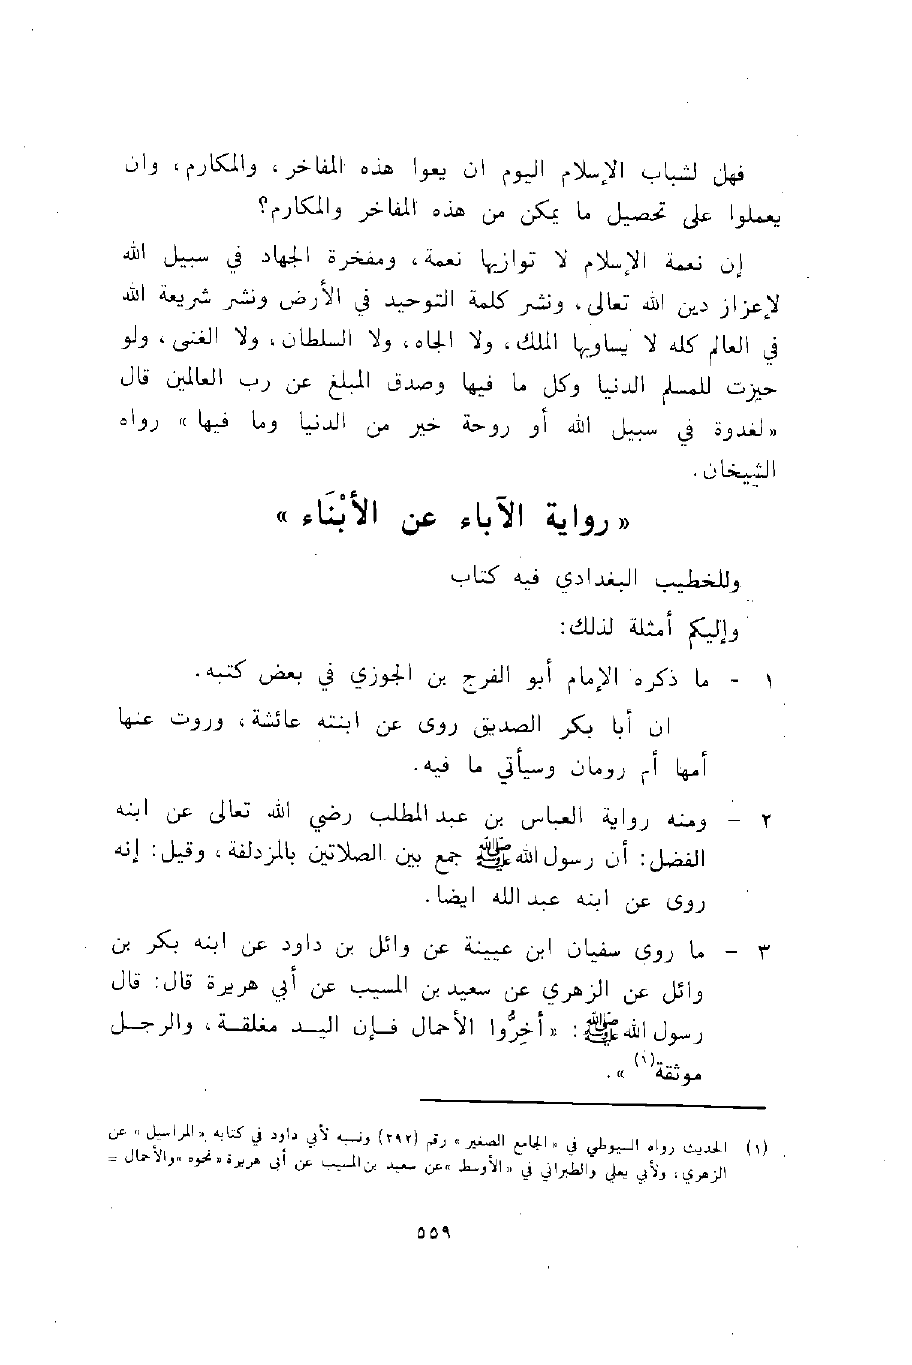 فهل لشباب الإسلام اليوم ان يعوا هذه المفاخر، والمكارم، وان
يعملوا على تحصيل ما يمكن من هذه المفاخر والمكارم؟
إن نعمة الإسلام لا توازيها نعمة، ومفخرة الجهاد في سبيل الله
لإعزاز دين الله تعالى، ونشر كلمة التوحيد في الأرض ونشر شريعة الله
في العالم كله لا يساويها الملك، ولا الجاه، ولا السلطان، ولا الغنى، ولو
حيزت للمسلم الدنيا وكل ما فيها وصدق المبلغ عن رب العالمين قال
«لغدوة في سبيل الله أو روحة خير من الدنيا وما فيها» رواه
الشيخان.
«رواية الآباء عن الأبْنَاء»
وللخطيب البغدادي فيه كتاب
وإليكم أمثلة لذلك:
١ - ما ذكره الإمام أبو الفرج بن الجوزي في بعض كتبه.
ان أبا بكر الصديق روى عن ابنته عائشة، وروت عنها
أمها أم رومان وسيأتي ما فيه.
٢ - ومنه رواية العباس بن عبدالمطلب رضي الله تعالى عن ابنه
الفضل: أن رسول الله ﷺ جمع بين الصلاتين بالمزدلفة، وقيل: إنه
روى عن ابنه عبدالله ايضا.
٣ - ما روى سفيان ابن عيينة عن وائل بن داود عن ابنه بكر بن
وائل عن الزهري عن سعيد بن المسيب عن أبي هريرة قال: قال
رسول الله ﷺ: «أخِرُّوا الأحمال فـإن اليـد مغلقـة، والرجـل
موثقة(١)».
(١) الحديث رواه السيوطي في «الجامع الصغير» رقم (٢٩٢) ونسبه لأبي داود في كتابه «المراسيل» عن
الزهري، ولأبي يعلى والطبراني في «الأوسط» عن سعيد بن المسيب عن أبي هريرة «نحوه» والأحمال =
٥٥٩